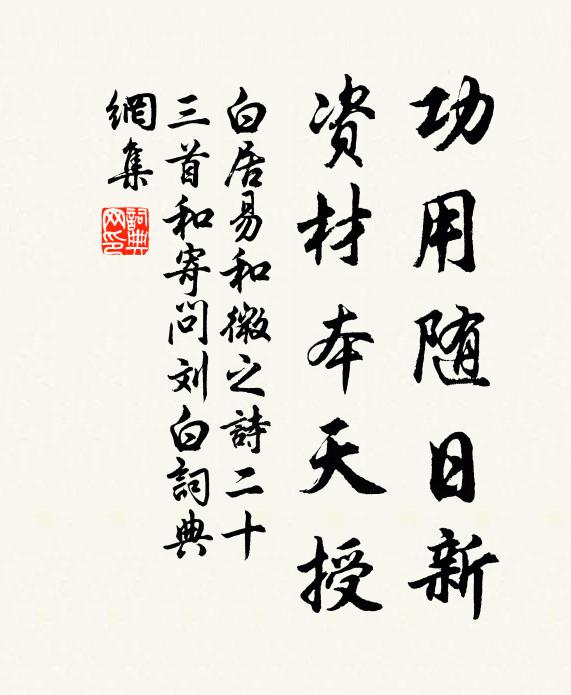 功用随日新
资材本天授
白居易和微之詩二十
三首和寄问刘白詞典
網集
詞典
网印